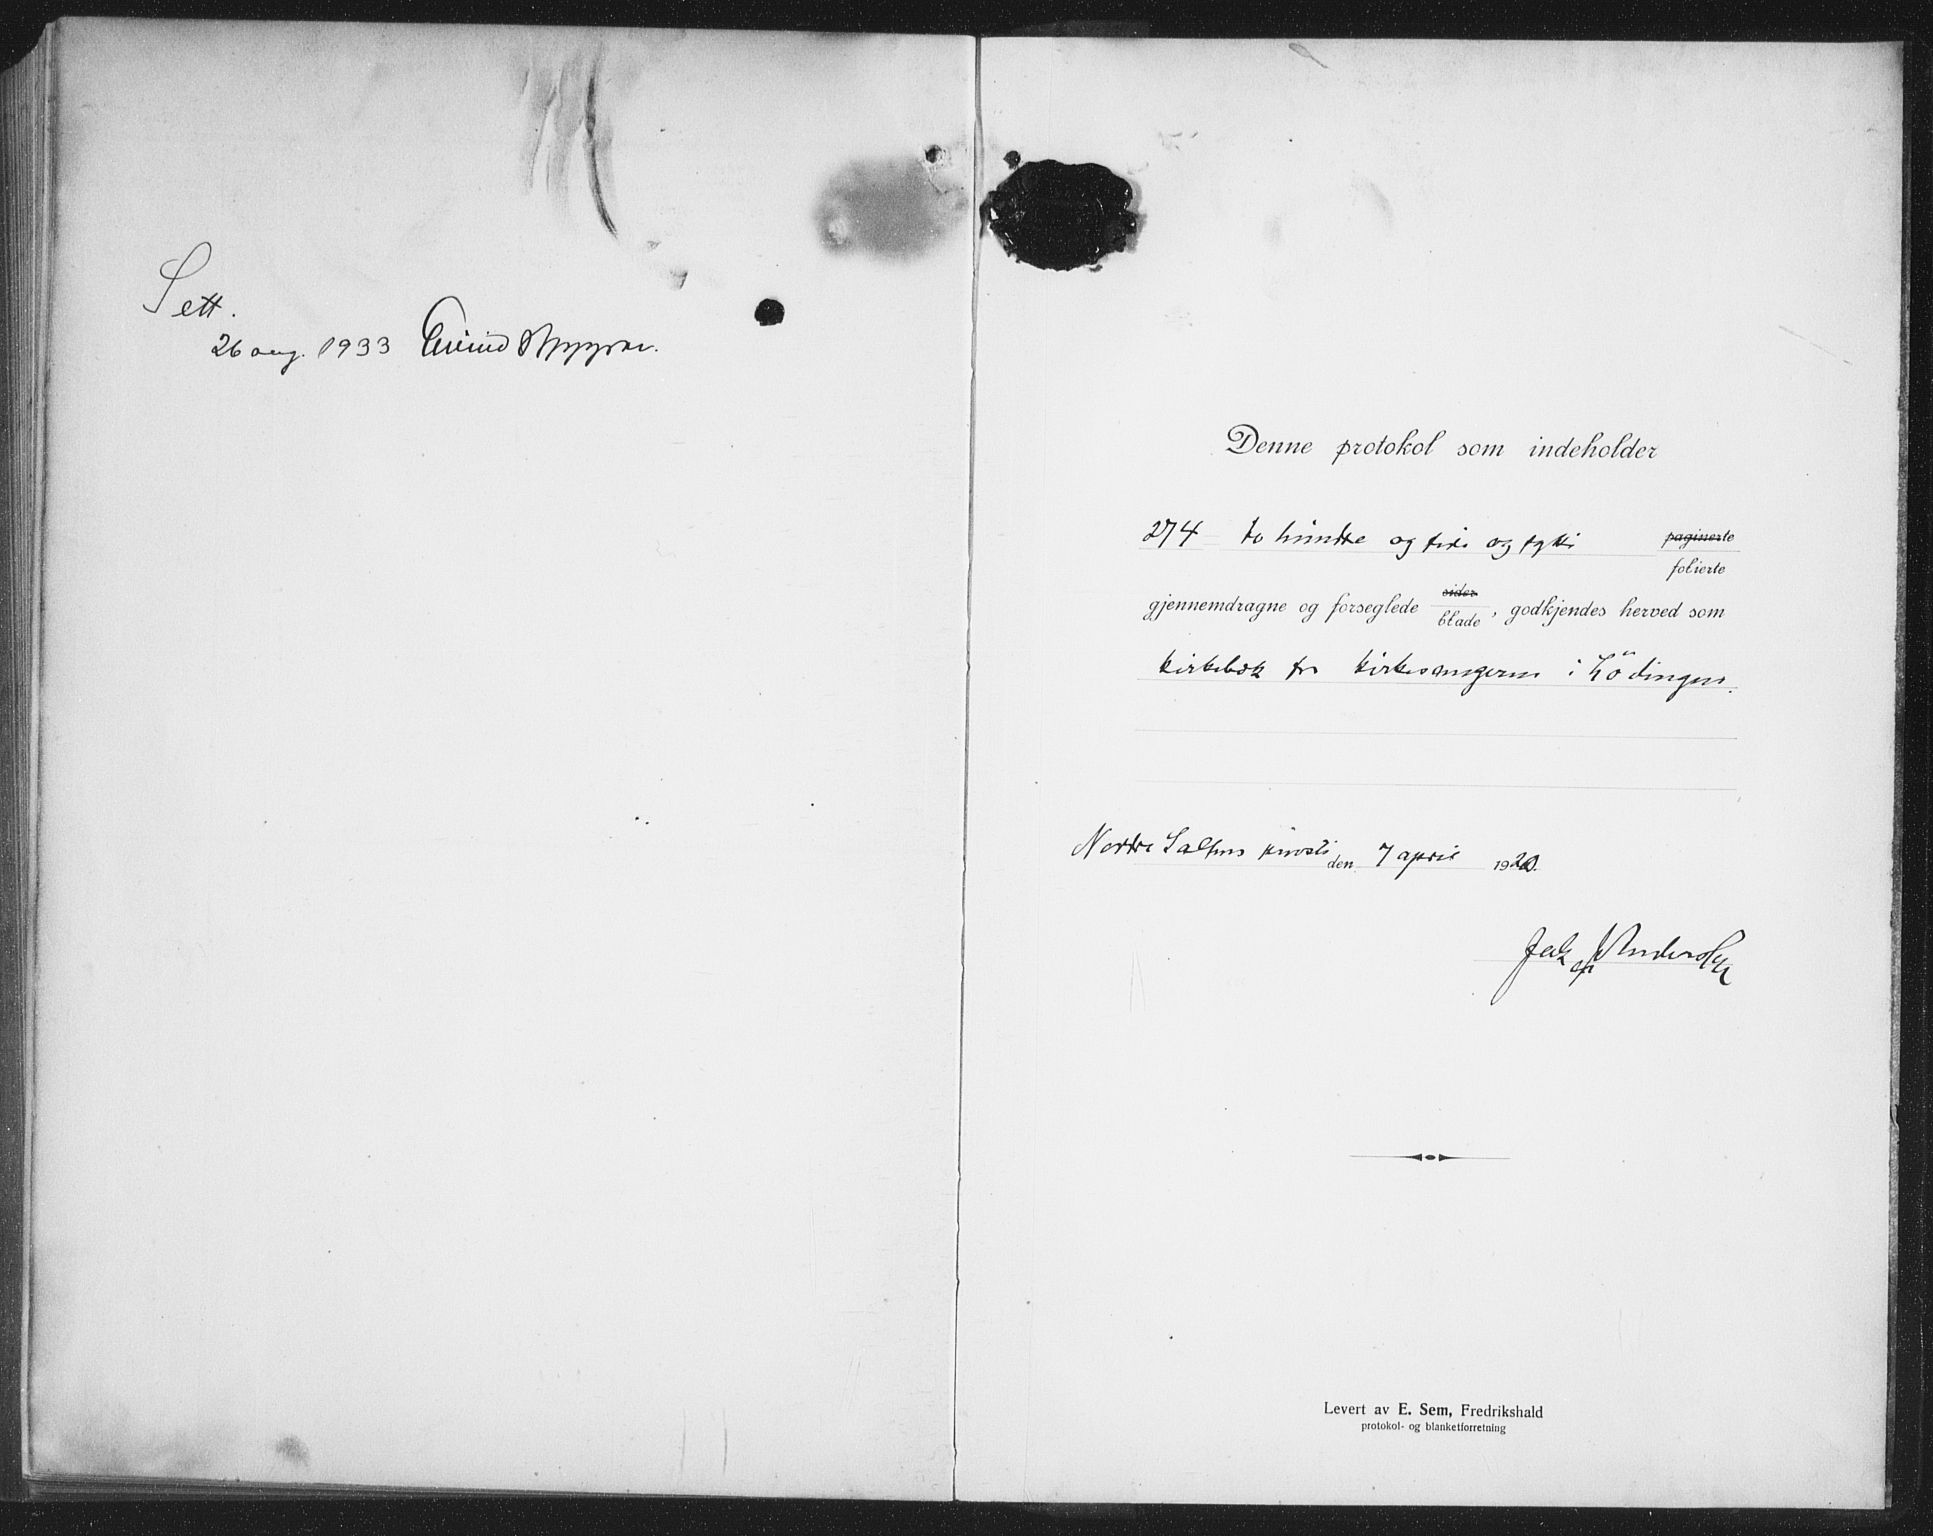 Sett.
26 aug. 1933 Eivind
Denne protokol som indeholder
274 to hundre og fire og sytti paginerte
folierte
gjennemdragne og forseglede sider
blade, godkjendes herved som
kirkebok for kirkesangeren i Lödingen.
Nordre Saltens prosti den 7 april 1920.
Levert av E. Sem, Fredrikshald
protokol- og blanketforretning